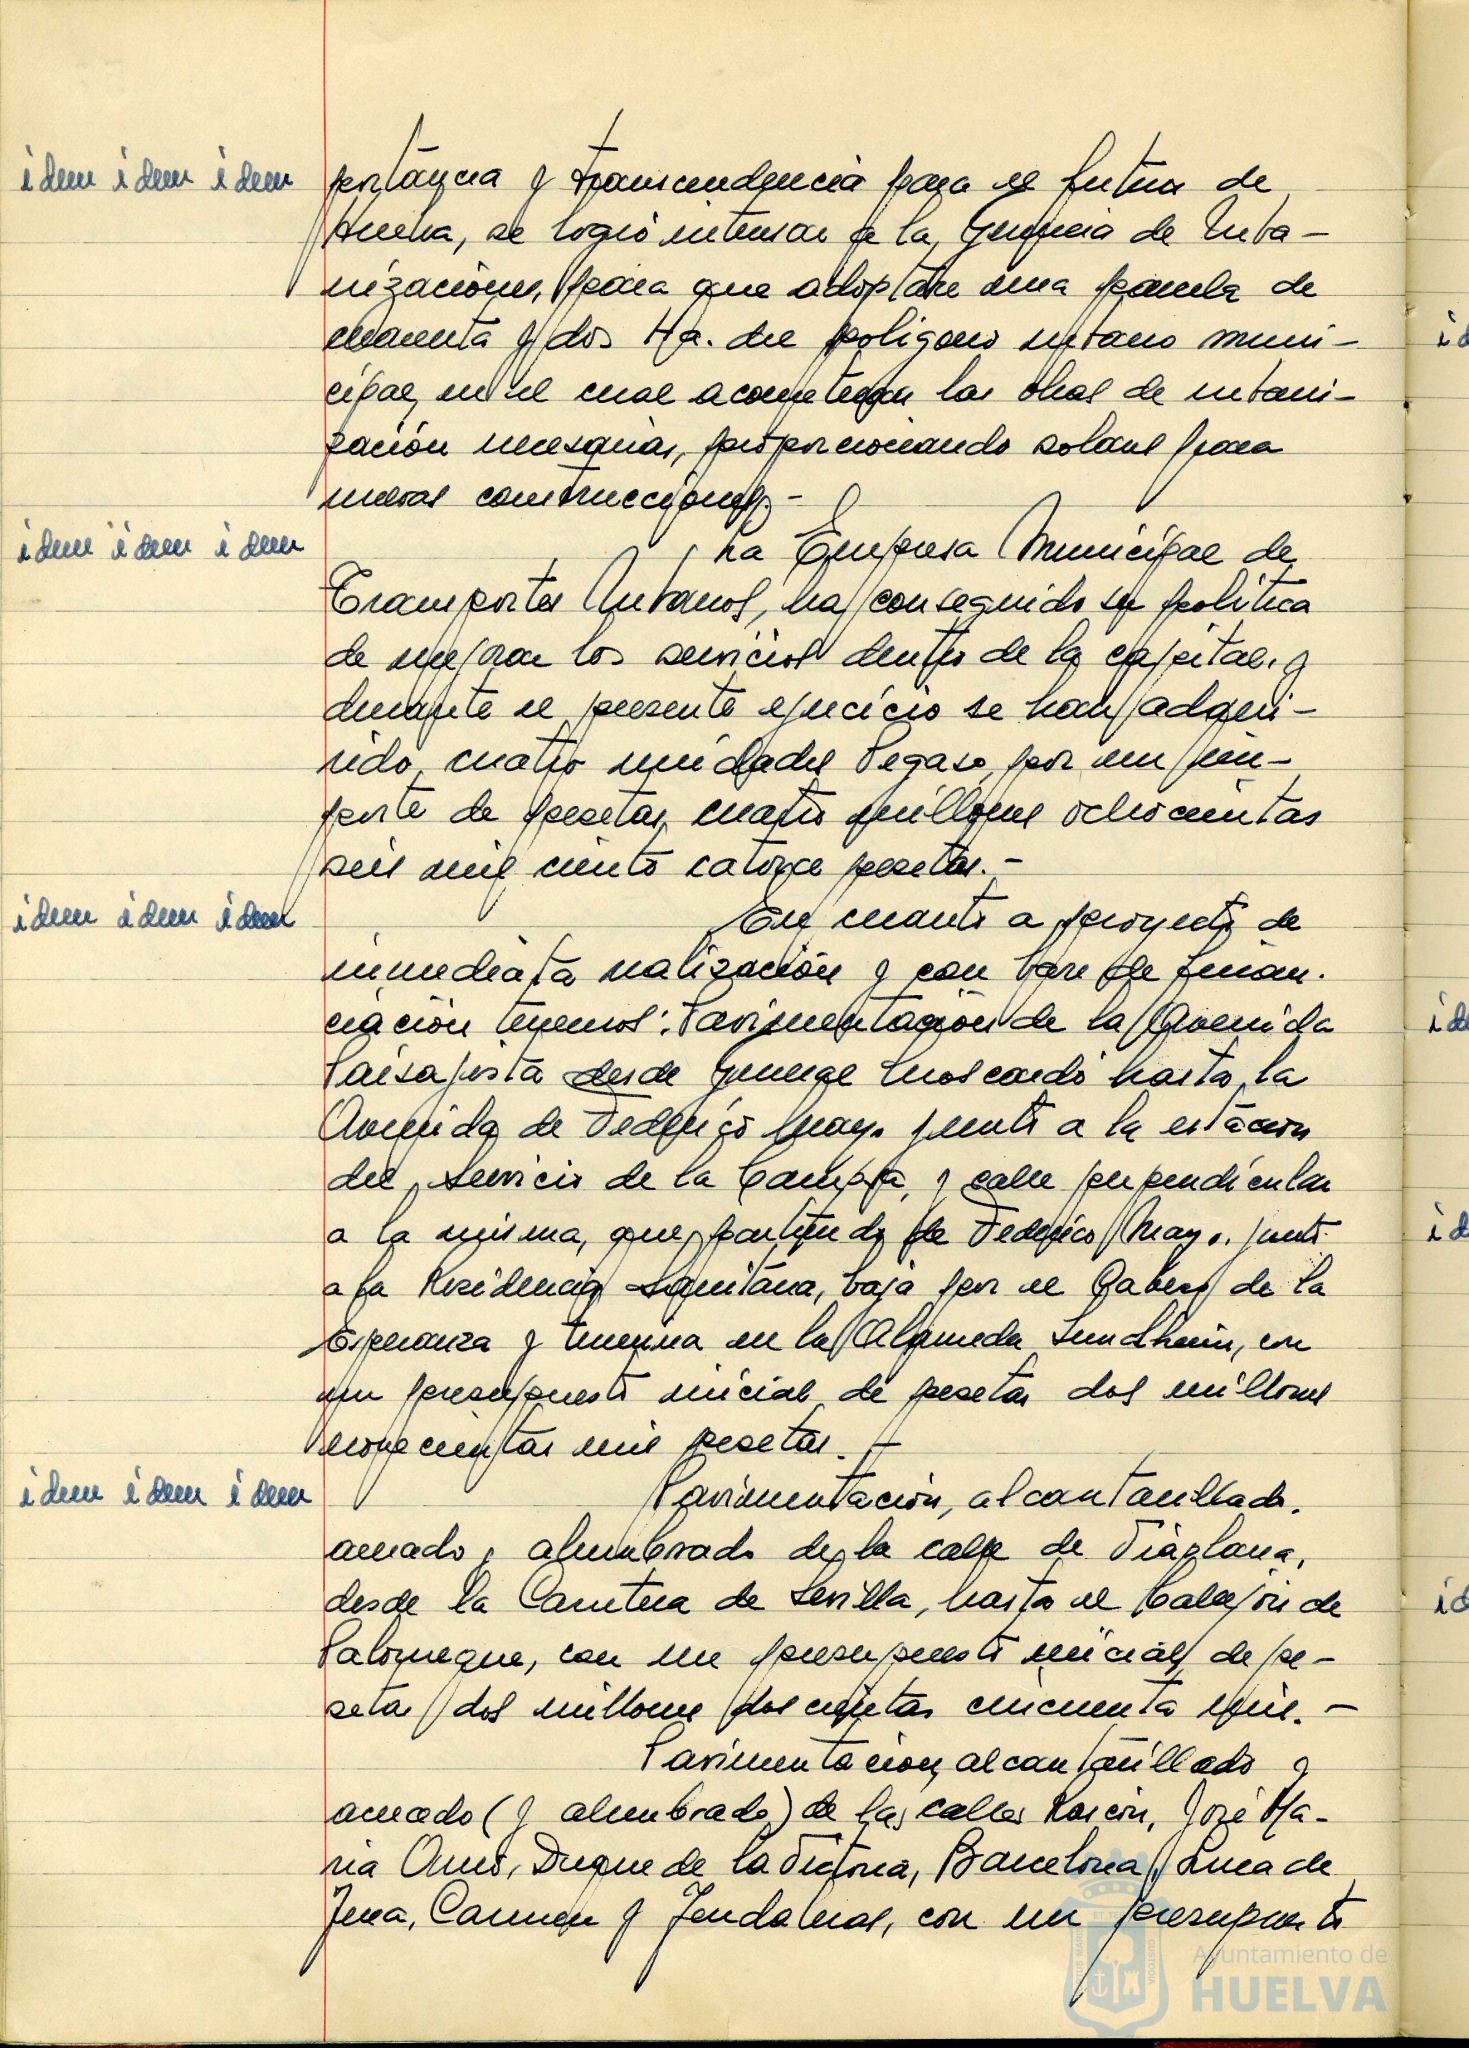 idem idem idem
portancia y transcendencia para el futuro de
Huelva, se logró interesar a la Gerencia de Urba-
nizaciones, para que adoptase una parcela de
cuarenta y dos Ha. del polígono urbano muni-
cipal, en el cual acometerán las obras de urbani-
zación necesarias, proporcionando solares para
nuevas construcciones.-
idem idem idem
La Empresa Municipal de
Transportes Urbanos, ha conseguido su política
de mejorar los servicios dentro de la capital, y
durante el presente ejercicio se han adqui-
rido cuatro unidades Pegaso, por un im-
porte de pesetas cuatro millones ochocientas
seis mil ciento catorce pesetas.-
idem idem idem
En cuanto a proyectos de
inmediata realización y con base de finan-
ciación tenemos: Pavimentación de la Avenida
Paisajista desde General Moscardó hasta la
Avenida de Federico Mayo, junto a la estación
del Servicio de la Campsa, y calle perpendicular
a la misma, que partiendo de Federico Mayo, junto
a la Residencia Sanitaria, baja por el Cabezo de la
Esperanza y termina en la Alameda Sundheim, con
un presupuesto inicial de pesetas dos millones
novecientas mil pesetas.-
idem idem idem
Pavimentación, alcantarillado,
acerado, alumbrado de la calle de Viaplana,
desde la Carretera de Sevilla, hasta el Callejón de
Palomeque, con un presupuesto inicial de pe-
setas dos millones doscientas cincuenta mil.-
Pavimentación, alcantarillado y
acerado (y alumbrado) de las calles Rascón, José Ma-
ria Amo, Duque de la Victoria, Barcelona, Luca de
Tena, Carmen y Tendaleras, con un presupuesto
Ayuntamiento de
HUELVA